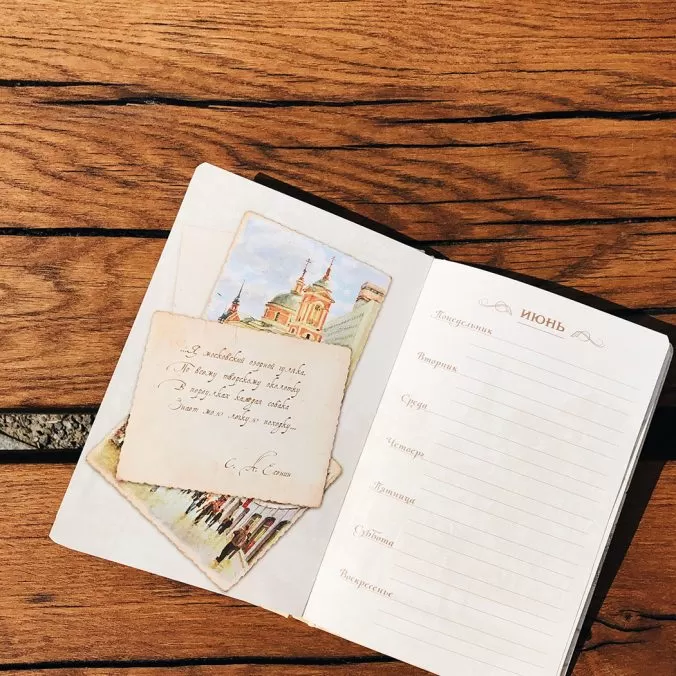 ...Я московский озорной гуляка,
По всему тверскому околотку
В переулках каждая собака
Знает мою легкую походку...
С. А. Есенин
ИЮНЬ
Понедельник
Вторник
Среда
Четверг
Пятница
Суббота
Воскресенье